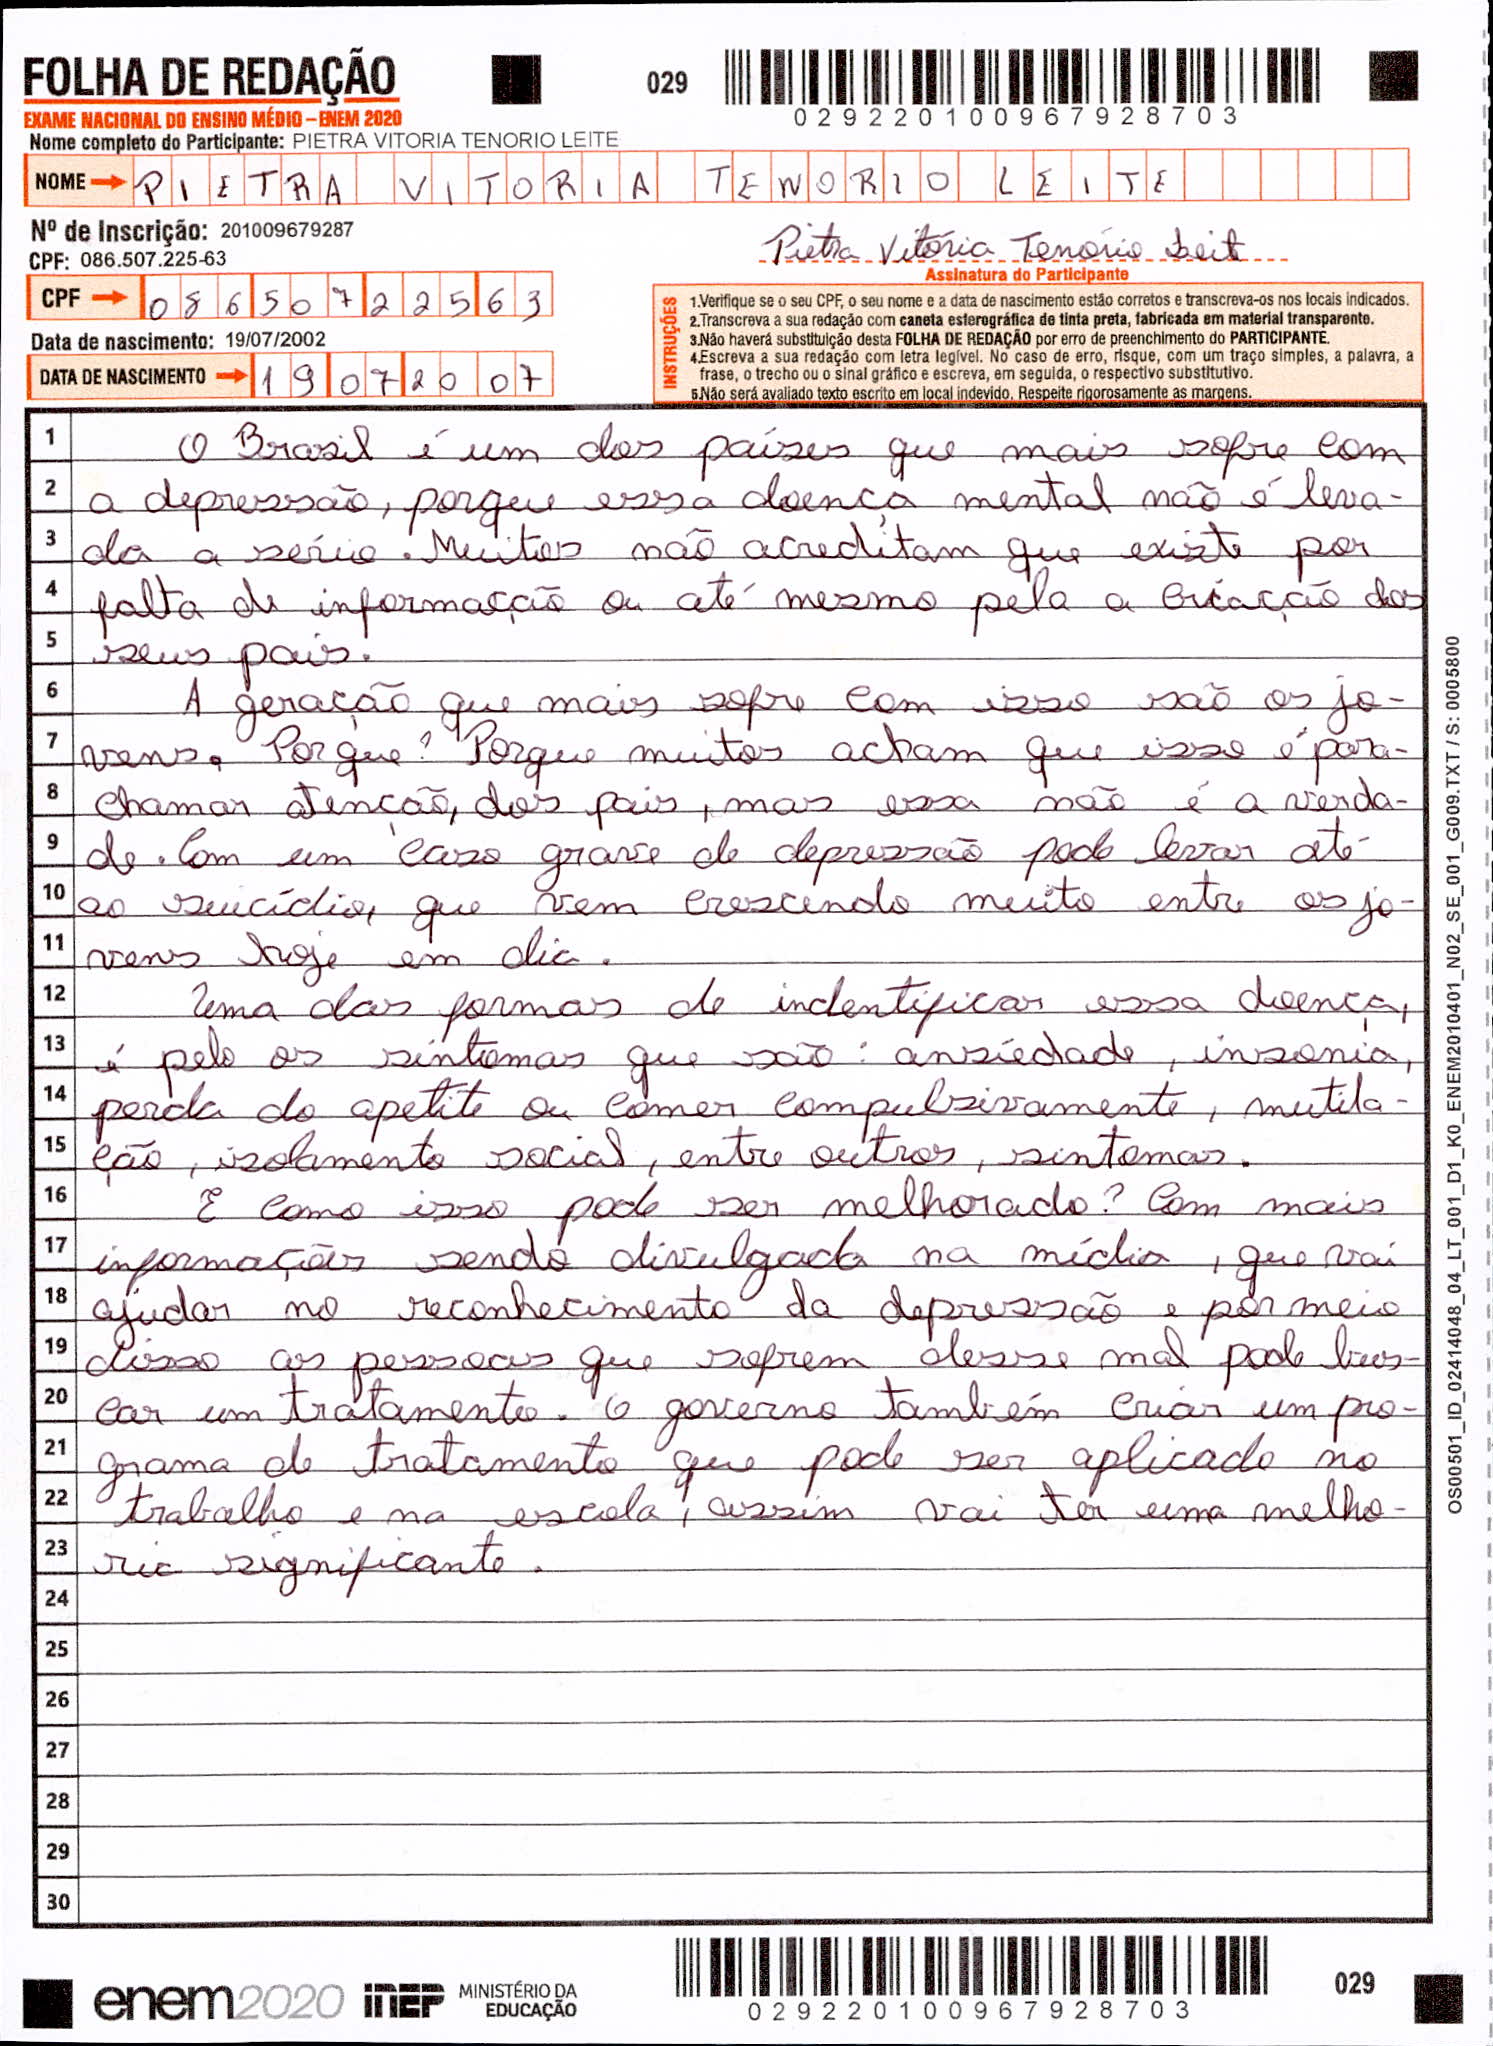 FOLHA DE REDAÇÃO
029
029220100967928703
EXAME NACIONAL DO ENSINO MÉDIO – ENEM 2020
Nome completo do Participante: PIETRA VITORIA TENORIO LEITE
NOME PIETRA VITORIA TENORIO LEITE
Nº de Inscrição: 201009679287
CPF: 086.507.225-63
Pietra Vitória Tenório Leit
Assinatura do Participante
CPF 08650722563
Data de nascimento: 19/07/2002
DATA DE NASCIMENTO 19072007
INSTRUÇÕES
1.Verifique se o seu CPF, o seu nome e a data de nascimento estão corretos e transcreva-os nos locais indicados.
2.Transcreva a sua redação com caneta esferográfica de tinta preta, fabricada em material transparente.
3.Não haverá substituição desta FOLHA DE REDAÇÃO por erro de preenchimento do PARTICIPANTE.
4.Escreva a sua redação com letra legível. No caso de erro, risque, com um traço simples, a palavra, a
frase, o trecho ou o sinal gráfico e escreva, em seguida, o respectivo substitutivo.
5.Não será avaliado texto escrito em local indevido. Respeite rigorosamente as margens.
1 O Brasil é um dos países que mais sofre com
2 a depressão, porque essa doença mental não é leva-
3 da a sério. Muitos não acreditam que existe por
4 falta de informação ou até mesmo pela a criação dos
5 seus pais.
6 A geração que mais sofre com isso são os jo-
7 vens. Porque? Porque muitos acham que isso é para-
8 chamar atenção, dos pais, mas essa não é a verda-
9 de. Com um caso grave de depressão pode levar até
10 ao suicídio, que vem crescendo muito entre os jo-
11 vens hoje em dia.
12 Uma das formas de indentificar essa doença,
13 é pelo os sintomas que são: ansiedade, insonia,
14 perda do apetite ou comer compulsivamente, mutila-
15 ção, isolamento social, entre outros, sintomas.
16 E como isso pode ser melhorado? Com mais
17 informações sendo divulgada na mídia, que vai
18 ajudar no reconhecimento da depressão e por meio
19 disso as pessoas que sofrem desse mal pode bus-
20 car um tratamento. O governo também criar um pro-
21 grama de tratamento que pode ser aplicado no
22 trabalho e na escola, assim vai ter uma melho-
23 ria significante.
24
25
26
27
28
29
30
OS00501_ID_02414048_04_LT_001_D1_K0_ENEM2010401_N02_SE_001_G009.TXT / S: 0005800
enem2020 INEP MINISTÉRIO DA
EDUCAÇÃO
029220100967928703
029